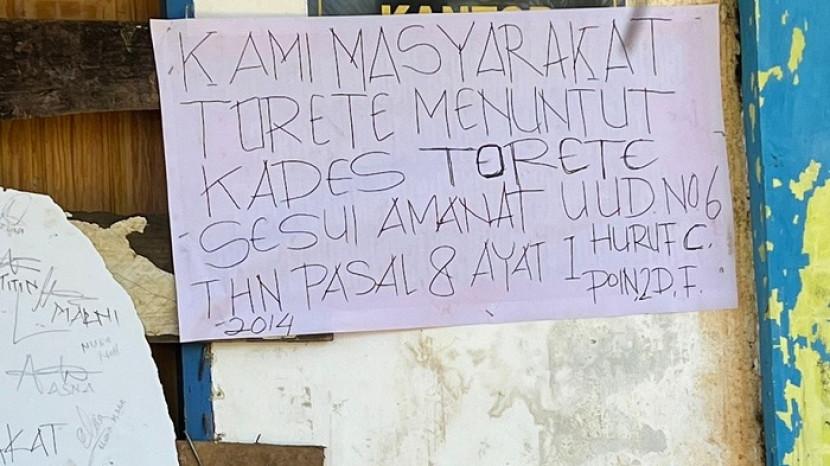 KANTOR
KAMI MASYARAKAT
TORETE MENUNTUT
KADES TORETE
SESUI AMANAT UUD. NO 6
THN PASAL 8 AYAT 1 HURUF C.
2014 POIN 2 D, F.
TITIN
MARNI
ASNA
KAT